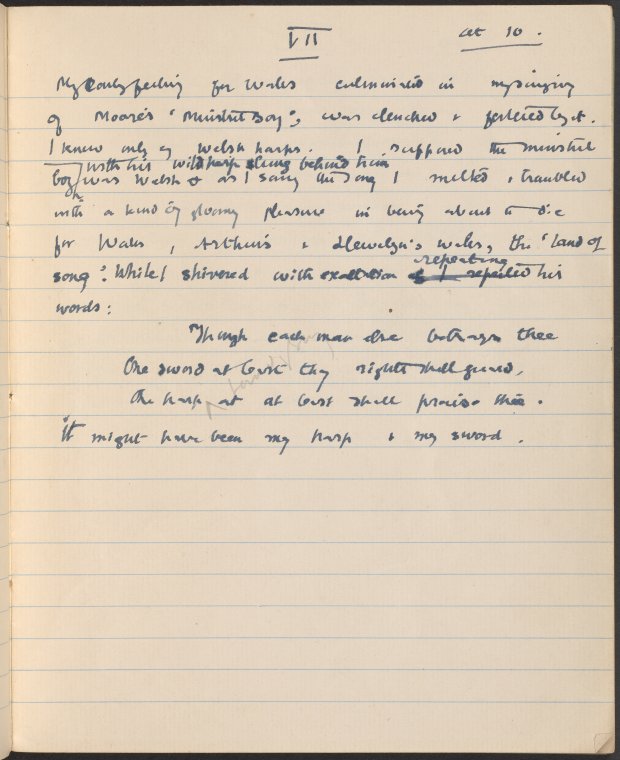 VII
at 10.
My early feeling for Wales culminated in my singing
of Moore's "Minstrel Boy", was clenched & fostered by it.
I knew only of Welsh harps. I supposed the minstrel
with his wild harp slung behind him
boy was Welsh & as I sang the song I melted & trembled
with a kind of gloomy pleasure in being about to die
for Wales, Arthur's & Llewelyn's Wales, the "land of
repeating
song". While I shivered with exaltation as I repeated his
words:
Though each man else betrays thee
One sword at least thy rights shall guard,
One harp at at least shall praise thee.
It might have been my harp & my sword.